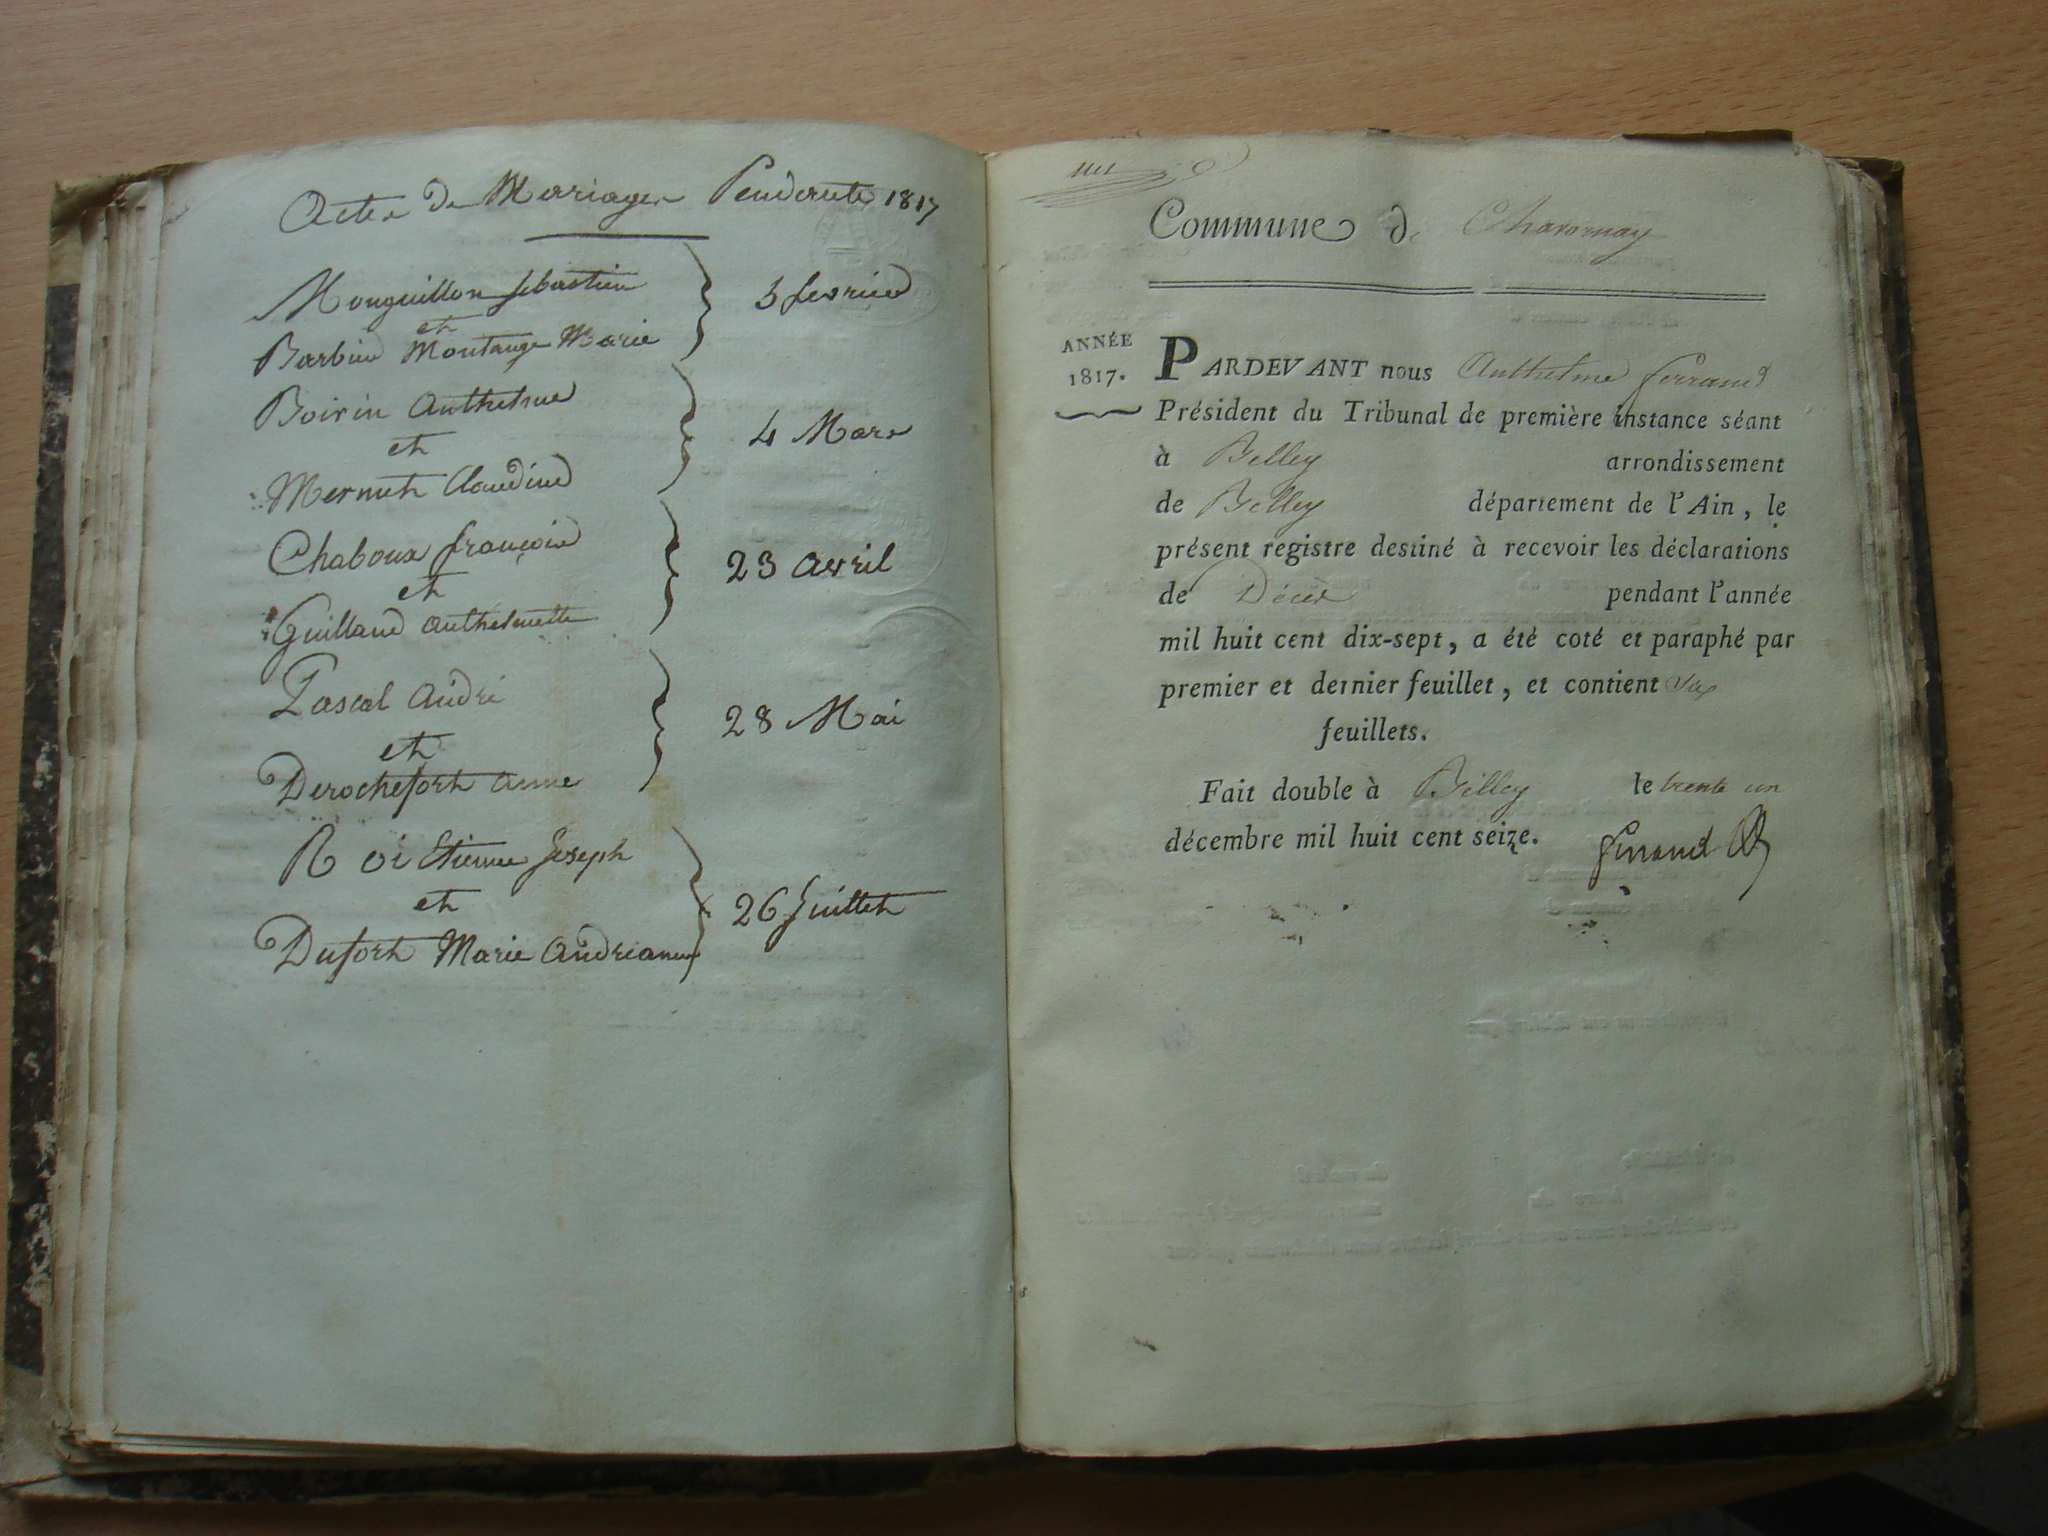 Actes de Mariages Pendente 1817
Monguillon Sébastien
et
Barbier Montange Marie
3 fevrier
Boirin Anthelme
et
Mermet Claudine
4 Mars
Chaboux françois
et
Guilland Anthelmette
23 avril
Pascal André
et
Derochefort Anne
28 Mai
Roi Etienne Joseph
et
Dufort Marie Andrianne
26 Juillet
Commune de Chavornay
ANNÉE
1817.
PARDEVANT nous Anthelme ferrand
Président du Tribunal de première instance séant
à Belley arrondissement
de Belley département de l'Ain, le
présent registre destiné à recevoir les déclarations
de Décès pendant l'année
mil huit cent dix-sept, a été coté et paraphé par
premier et dernier feuillet, et contient six
feuillets.
Fait double à Belley le trente un
décembre mil huit cent seize.